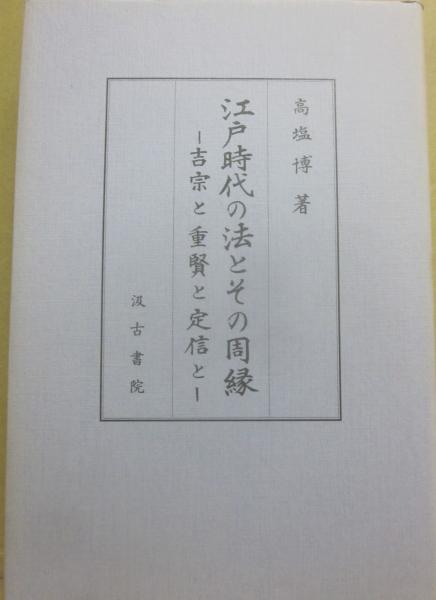 高塩博著
江戸時代の法とその周縁
－吉宗と重賢と定信と－
汲古書院